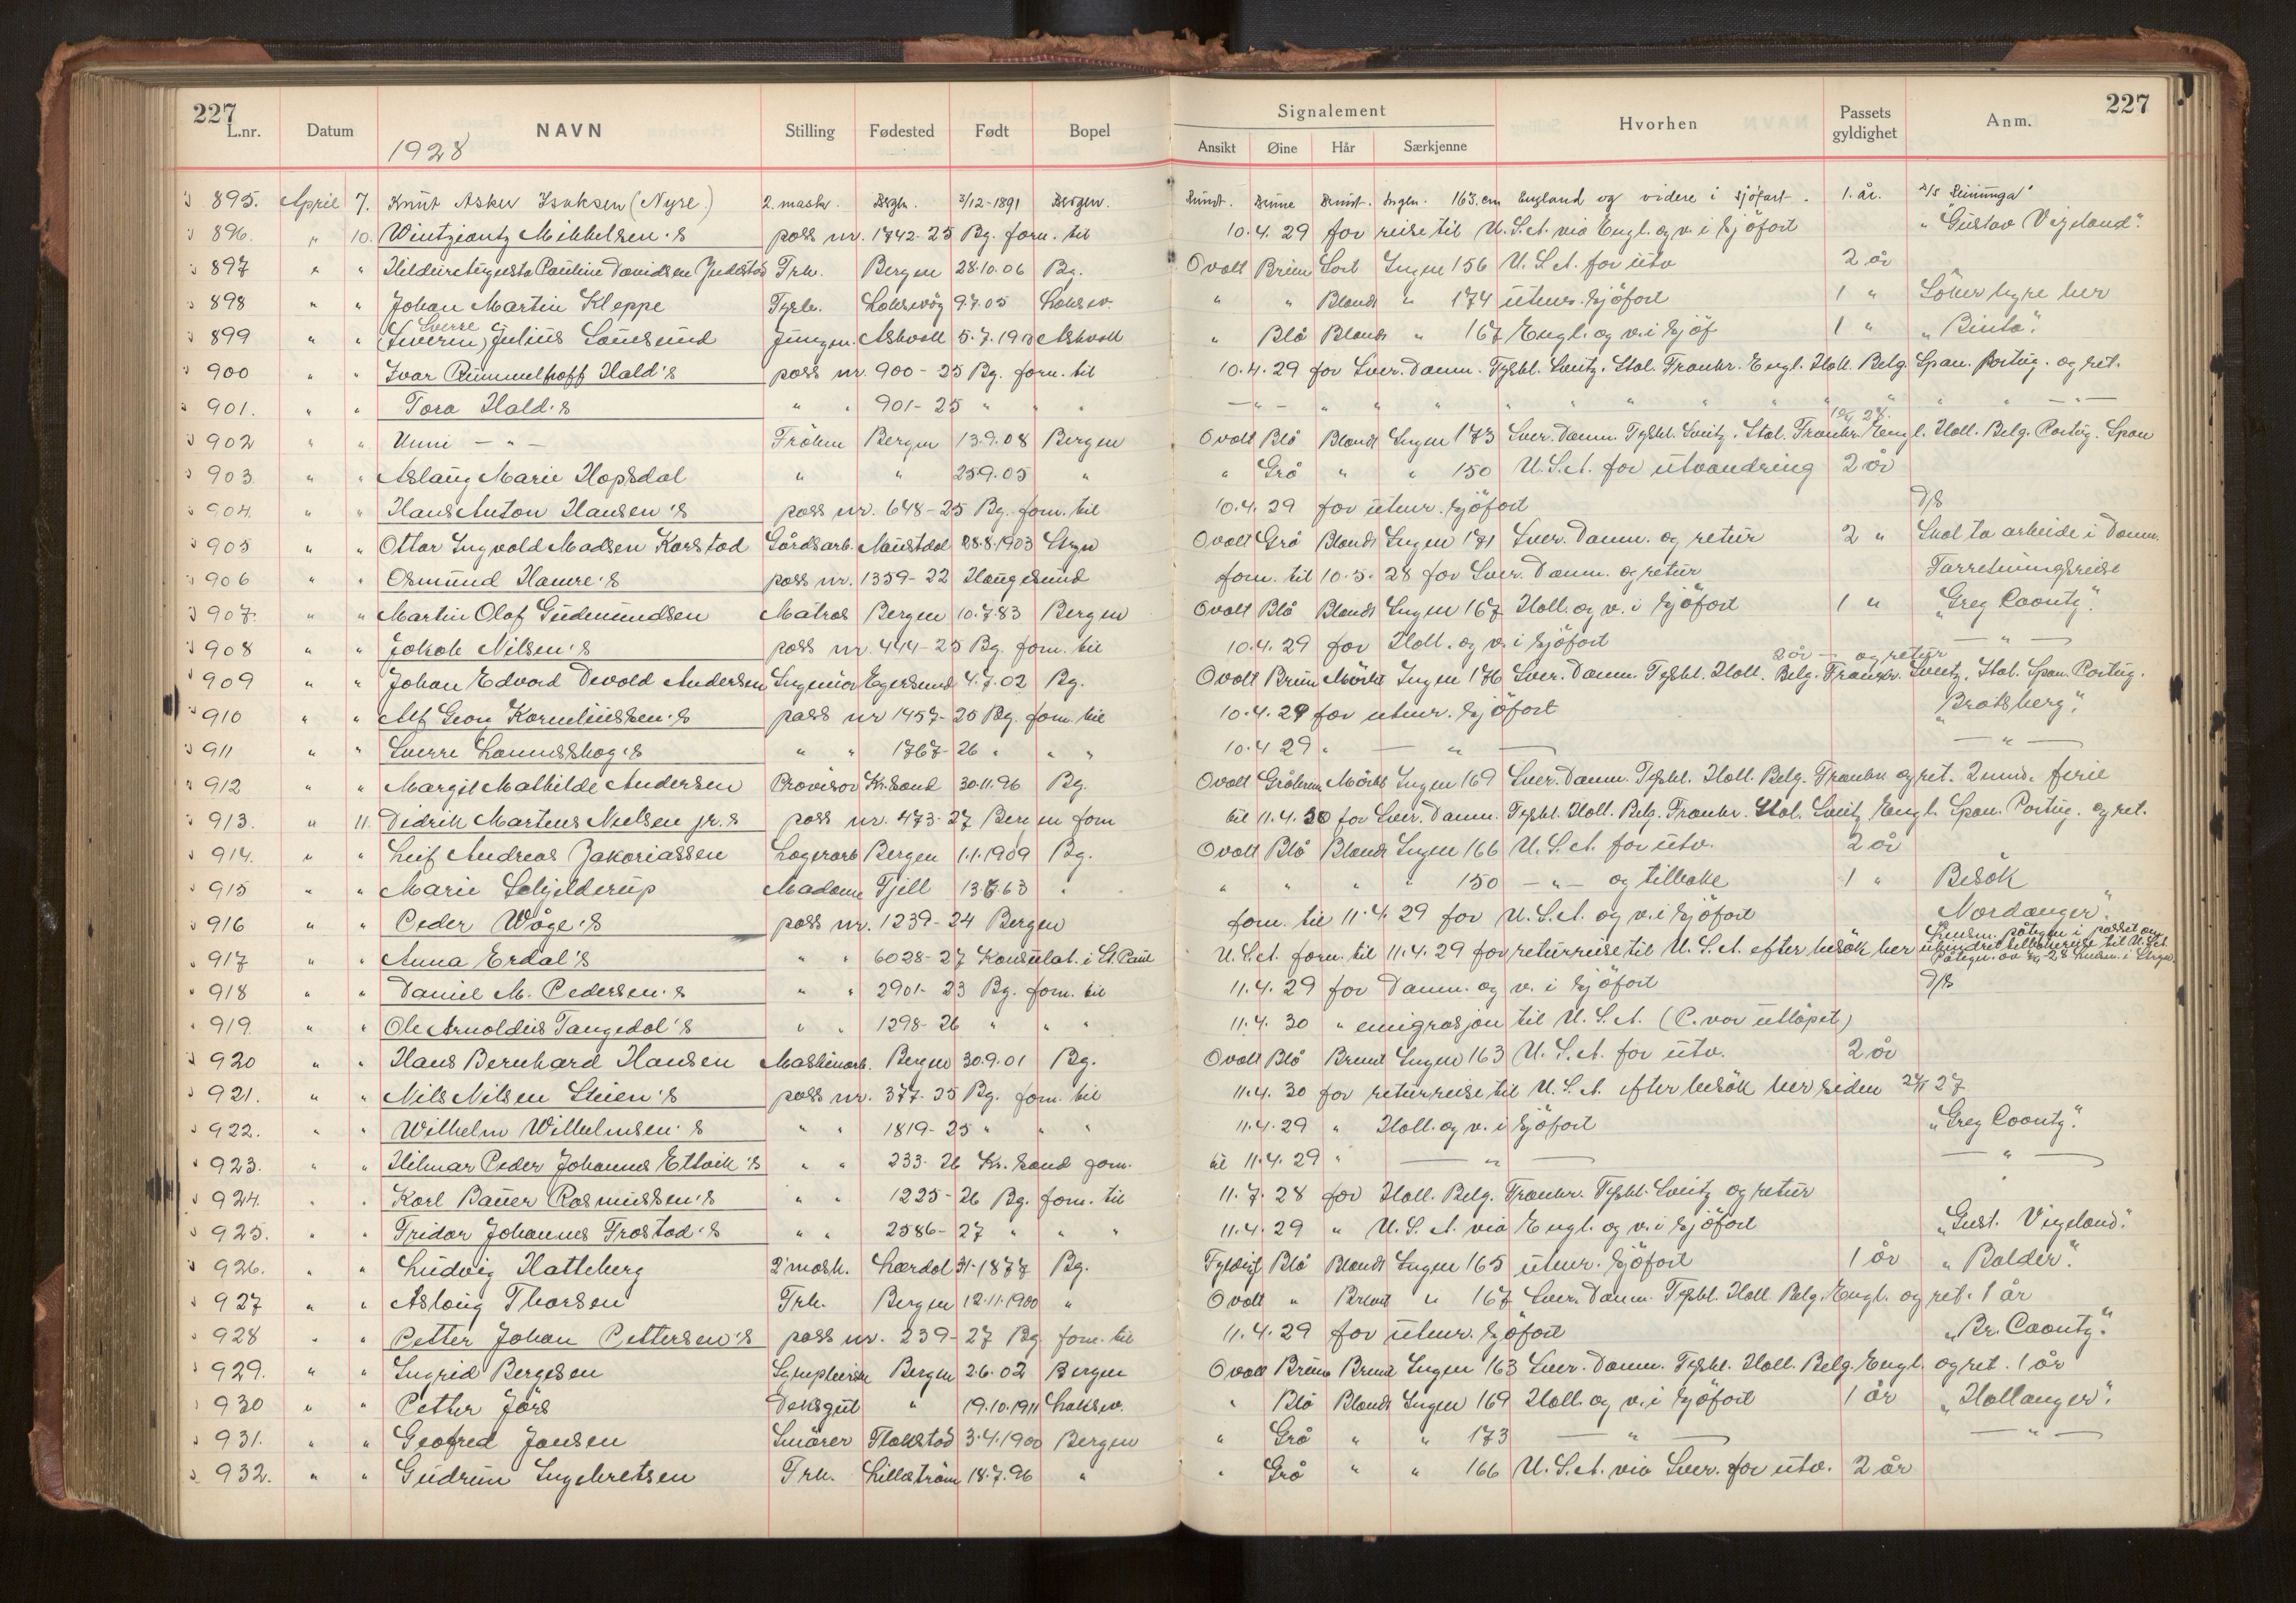 227
L.nr. Datum NAVN Stilling Fødested Født Bopel
1928
Signalement Hvorhen Passets gyldighet Anm. 227
Ansikt Øine Hår Særkjenne
895. April 7. Knut Asker Isaksen (Nyre) 2. mask. Bergen 3/12-1891 Bergen. Rundt. Brune Brunt. Ingen. 163.cm England og videre i sjöfart. 1. år.
896. " 10. Wintzjantz Mikkelsen's pass nr. 1742-25 Bg. forn. til 10.4.29 for reise til U.S.A. via Engl. og v. i sjöfart "Gustav Vigeland".
897 " " Augusta Pauline Davidsen Trh. Bergen 28.10.06 Bg. Ovalt Brune Sort Ingen 156 U.S.A. for utv 2 år
898 " " Johan Martin Kleppe Fyrb. Laksevåg 9.7.05 Laksev. " " Blondt " 174 utenr. sjöfart 1 " Söker hyre her
899 " " (Severin) Sverre Julius Sausund Jungm. Askvoll 5.7.19 Askvoll " Blå Blondt " 167 Engl. og v. i sjöf 1 " "Binta".
900 " " Ivar Rummelhoff Hald's pass nr. 900-25 Bg. forn. til 10.4.29 for Sver. Danm. Tyskl. Sveitz. Ital. Frankr. Engl. Holl. Belg. Span. Portug. og ret.
901. " " Tora Hald's " " 901-25 " " " — " — " " " " " " " " " " — " —
902 " " Unni — " — Fröken Bergen 13.9.08 Bergen Ovalt Blå Blondt Ingen 173 Sver. Danm. Tyskl. Sveitz. Ital. Frankr. Engl. Holl. Belg. Portug. Span
903. " " Aslaug Marie Hopsdal " " 25.9.05 " " Grå " " 150 U.S.A. for utvandring 2 år
904. " " Hans Anton Hansen's pass nr. 648-25 Bg. forn. til 10.4.29 for utenr. sjöfart D/S
905 " " Ottar Ingvald Madsen Karstad Gårdsarb. Naustdal 28.8.1903 Stryn Ovalt Grå Blondt Ingen 171 Sver. Danm. og retur 2 " Skal ta arbeide i Danm.
906 " " Osmund Hamre's pass nr. 1359-22 Haugesund forn. til 10.5.28 for Sver. Danm. og retur Forretningsreise
907. " " Martin Olaf Gudmundsen Matros Bergen 10.7.83 Bergen Ovalt Blå Blondt Ingen 167 Holl. og v. i sjöfart 1 " "Greg Coontz".
908 " " Jakob Nilsen's pass nr. 444-25 Bg. forn. til 10.4.29 for Holl. og v. i sjöfart — " —
909 " " Johan Edvard Devold Andersen Ingeniör Egersund 4.7.02 Bg. Ovalt Brune Mörkt Ingen 176 Sver. Danm. Tyskl. Holl. Belg. Frankr. Sveitz. Ital. Span. Portug. 2 år — og retur
910 " " Alf Georg Korneliussen's pass nr 1457-25 Bg. forn. til 10.4.29 for utenr. sjöfart "Bratsberg".
911 " " Sverre Lannesskog's " " 1767-26 " " " 10.4 29 " — " — — " —
912 " " Margit Mathilde Andersen Provisor Kr.sand 30.11.96 Bg. Ovalt Gråbrune Mörkt Ingen 169 Sver. Danm. Tyskl. Holl. Belg. Frankr og ret. 2 mnd. ferie
913. " 11. Didrik Martens Nielsen jr.s pass nr. 473-27 Bergen forn til 11.4.30 for Sver. Danm. Tyskl. Holl. Belg. Frankr. Ital. Sveitz Engl. Span. Portug. og ret.
914. " " Leif Andreas Zakariassen Lagerarb Bergen 1.1.1909 Bg. Ovalt Blå Blondt Ingen 166 U.S.A. for utv. 2 år
915 " " Marie Schjelderup Madame Fjell 13.6.63 " " " " " 150 — " — og tilbake 1 " Besök
916 " " Peder Wåge's pass nr. 1239-24 Bergen forn. til 11.4.29 for U.S.A. og v. i sjöfart "Nordanger".
917 " " Anna Erdal's " " 6028-27 Konsulat. i St. Paul U.S.A. forn. til 11.4.29 for returreise til U.S.A. efter besök her påtegn i passet om uhindret tilbakereise til U.S.A.
918 " " Daniel M. Pedersen's " " 2901-23 Bg. forn. til 11.4.29 for Danm. og v. i sjöfart D/S
919. " " Ole Arnoldus Tangedal's " " 1298-26 " " " 11.4.30 " emigrasjon til U.S.A. (P. var utlöpet)
920 " " Hans Bernhard Hansen Maskinarb. Bergen 30.9.01 Bg. Ovalt Blå Brunt Ingen 163 U.S.A. for utv. 2 år
921. " " Nils Nilsen Steien's pass nr. 377-25 Bg. forn. til 11.4.30 for returreise til U.S.A. efter besök her siden 27
922. " " Wilhelm Wilhelmsen's " " 1819-25 " " " 11.4.29 " Holl. og v. i sjöfart "Greg Coontz".
923. " " Hilmar Peder Johannes Ettvik's " " 233-26 Kr.sand forn. til 11.4.29 " — " — — " —
924. " " Karl Bauer Rasmussen's " " 1225-26 Bg. forn. til 11.7.28 for Holl. Belg. Frankr. Tyskl. Sveitz og retur
925. " " Fridar Johannes Frostad's " " 2586-27 " " " 11.4.29 " U.S.A. via Engl. og v. i sjöfart "Gust. Vigeland".
926. " " Ludvig Hatteberg 2' mask. Lærdal -1877 Bg. Fyldigt Blå Blondt Ingen 165 utenr. sjöfart 1 år "Balder".
927 " " Aslaug Thorsen Trh. Bergen 12.11.1900 " Ovalt " Brunt " 167 Sver. Danm. Tyskl. Holl. Belg. Engl. og ret. 1 år
928 " " Petter Johan Pettersen's pass nr. 239-27 Bg forn. til 11.4.29 for utenr. sjöfart "Br. Coontz".
929. " " Ingrid Bergesen Sykepleierske Bergen 2.6.02 Bergen Ovalt Brune Brunt Ingen 163 Sver. Danm. Tyskl. Holl. Belg. Engl. og ret. 1 år
930 " " Petter Jörs Deksgut " 19.10.1911 Laksev. " Blå Blondt Ingen 169 Holl. og v. i sjöfart 1 år "Hallanger".
931. " " Geofred Jansen Smörer Flakstad 3.4.1900 Bergen " Grå " " 173 — " — — " —
932. " " Gudrun Ingebretsen Trh. Lilleström 18.7.96 " " Grå " " 166 U.S.A. via Sver. for utv. 2 år